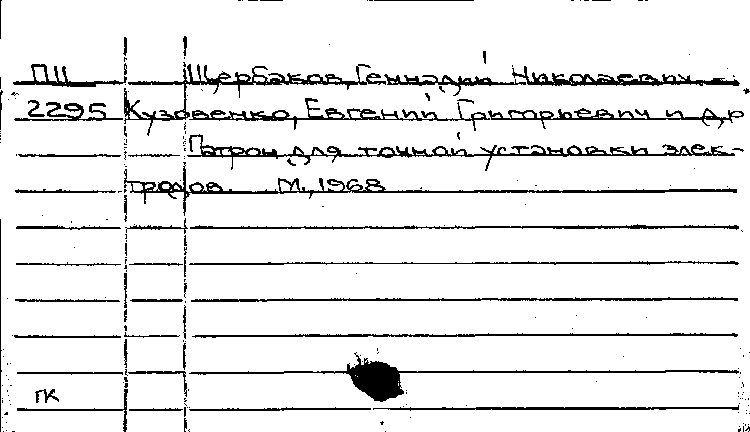 ПЦ Щербаков, Геннадий Николаевич,
2295 Кузовенко, Евгений Григорьевич и др
Патрон для точной установки элек-
тродов. М., 1968
ГК